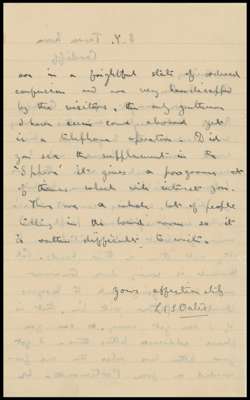 are in a frightful state of ordered
confusion and are very handicapped
by the visitors, the only gentleman
I have seen aboard yet
is a telephone operator. Did
you see the supplement in the
"Sphere" it gives a programme
of themes which will interest you.
There are a whole lot of people
sitting in the ward room so it
is rather difficult to write.
Yours affectionately
L.E.G. Oates